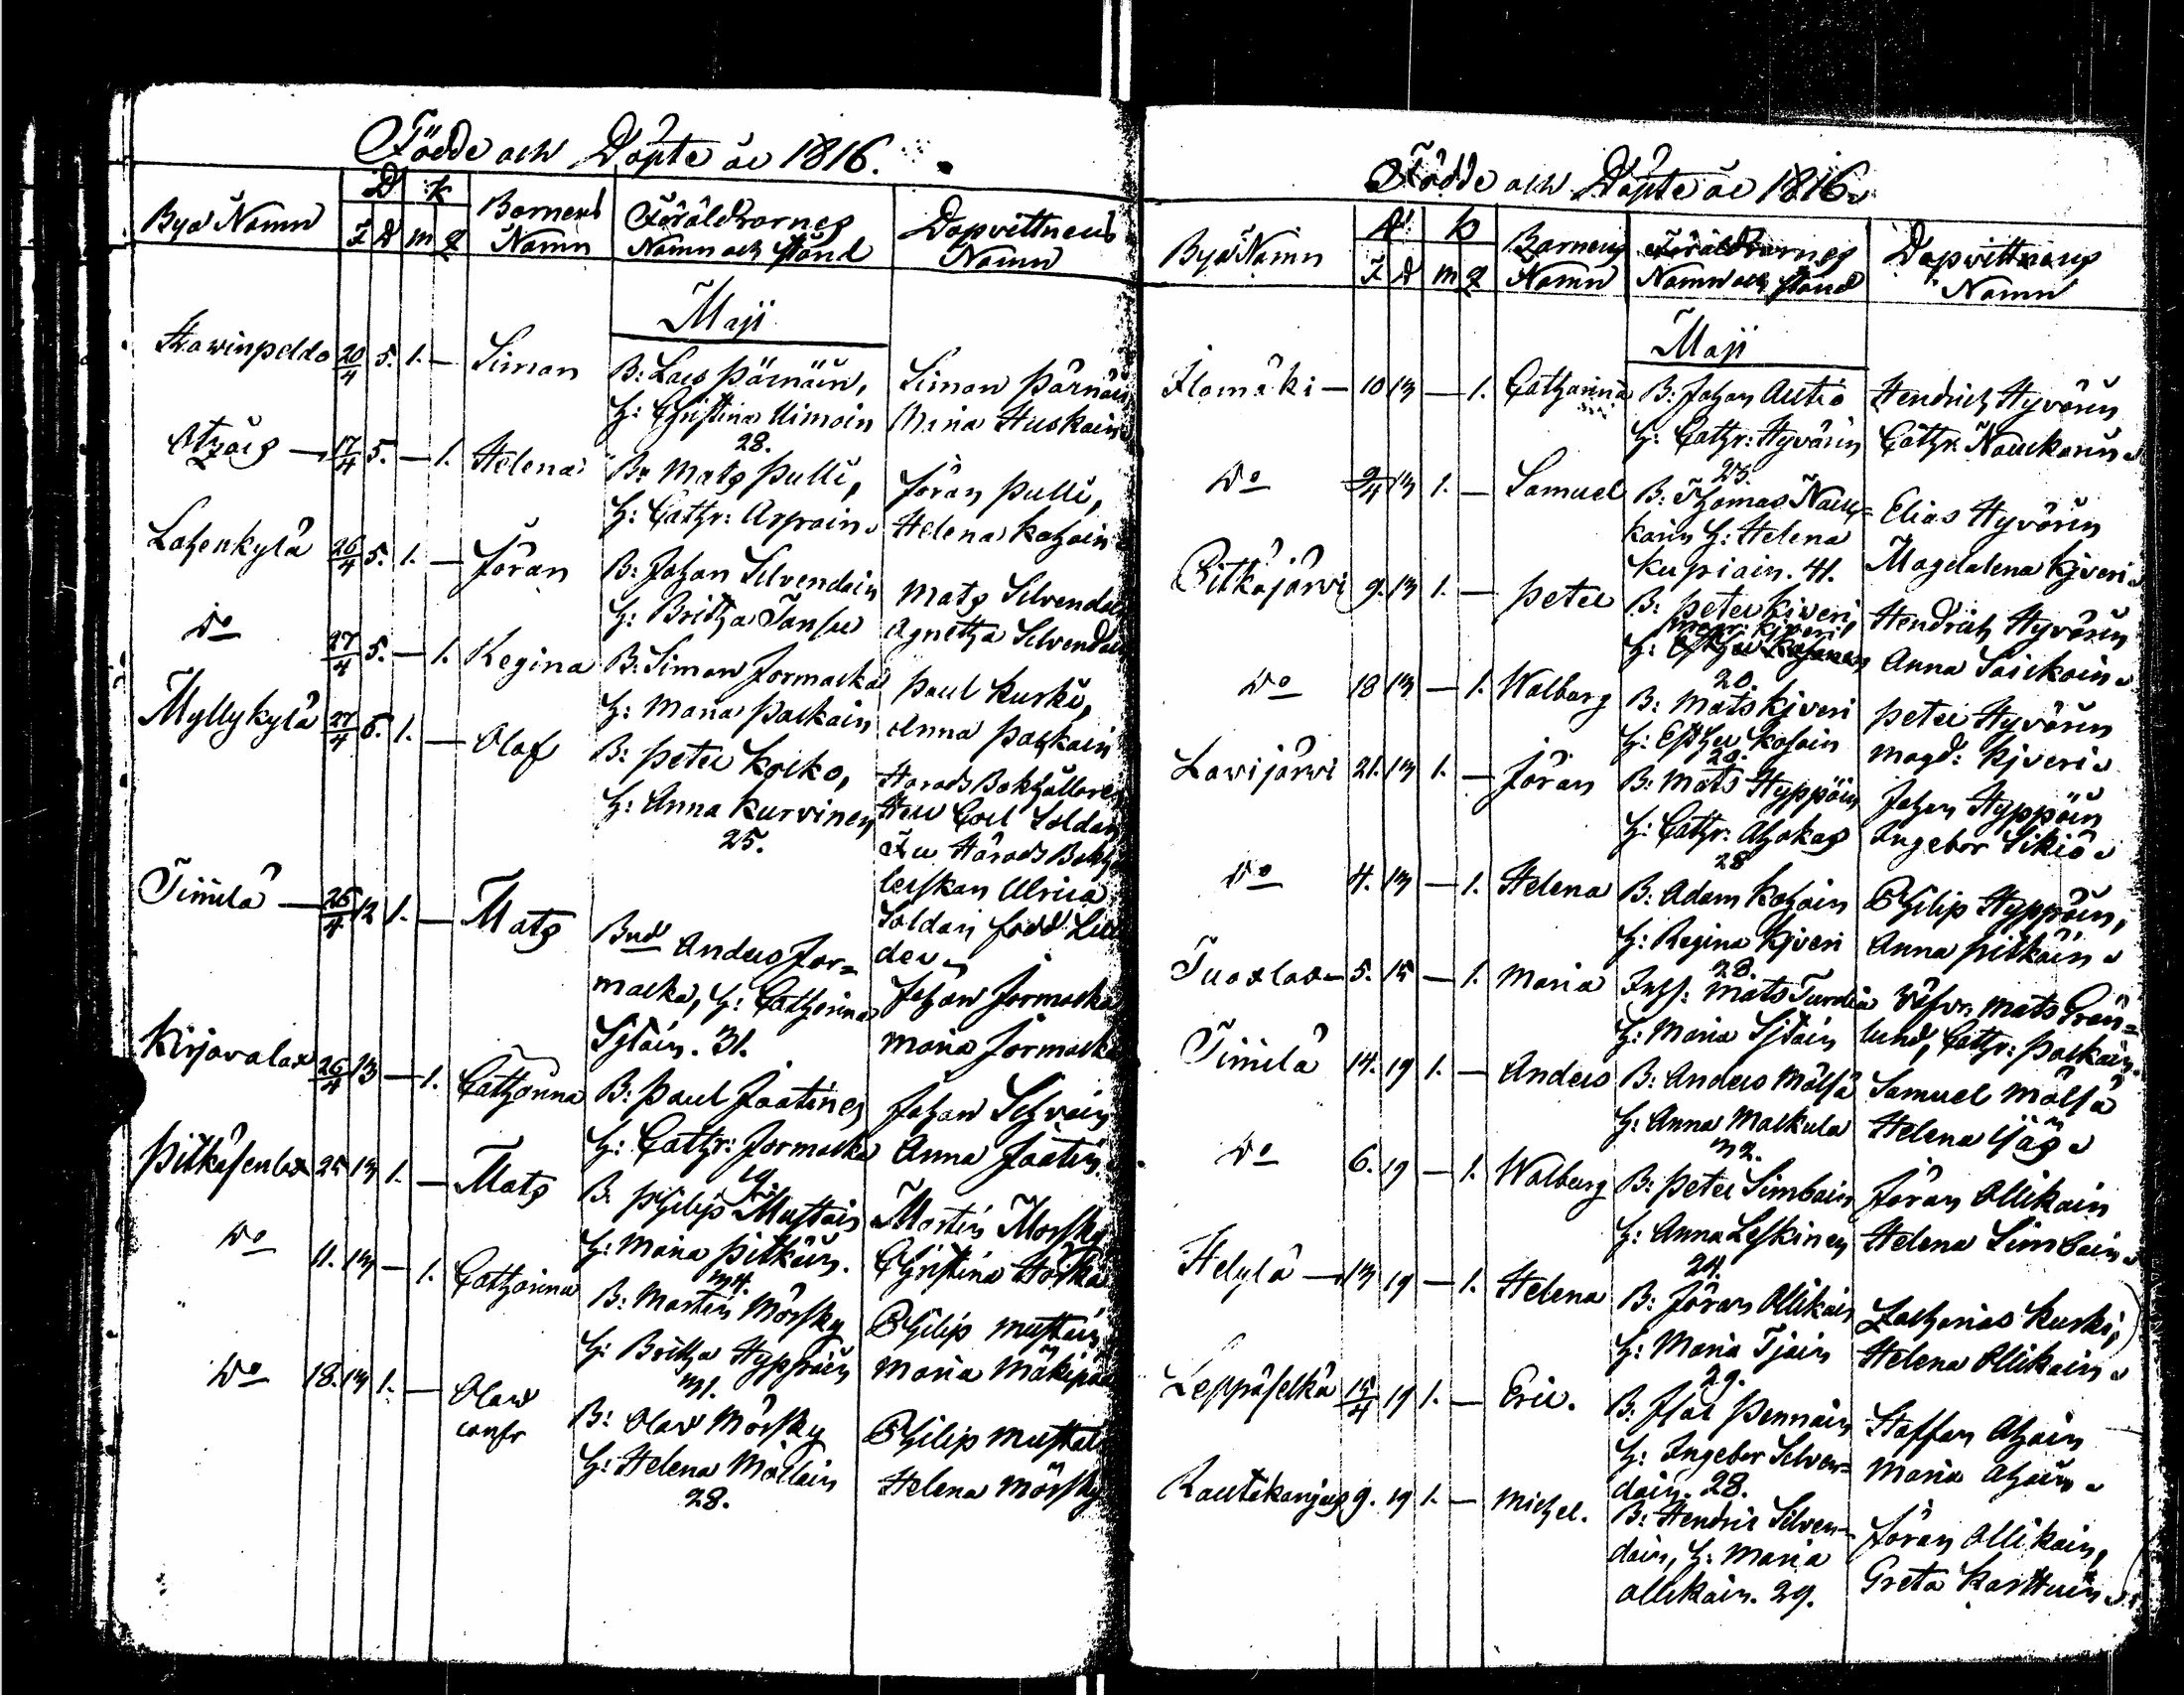 Födde och Döpte år 1816.
Bya Namn
D
K
F D m q
Barnens Namn
Föräldrarnes Namn och stånd
Dopvittnens Namn
Maji
Hawinpeldo 20/4 5. 1. — Simon
B: Lars Pärnäin,
H: Christina Uimoin
28.
Simon Pärnäin
Maria Huskain
Otzois — 17/4 5. — 1. Helena
B: Mats Pulli,
H: Cathr: Arproin
Jöran Pulli,
Helena Kohoin
Lahenkylä 26/4 5. 1. — Jöran
B: Johan Silvendoin
H: Britha Tansu
Mats Silvendoin
Agnetha Silvendoin
Do 27/4 5. — 1. Regina
B: Simon Jormacka
H: Maria Packain
Paul Kurki,
Anna Paskain
Myllykylä 27/4 6. 1. — Olof
B: Peter Koiko,
H: Anna Kurvinen
25.
Harads Bokhållaren
Herr Carl Soldan
Fru Härads Bokhål
lerskan Ulrica
Soldan född Lin
der
Tiinilä — 26/4 12 1. — Mats
Bnd Anders Jor=
macka, H: Catharina
Sjtäin. 31.
Johan Jormacka
Maria Jormacka
Kirjavalax 26/4 13 — 1. Catharina
B: Paul Jaatinen
H: Cathr: Jormacka
19.
Johan Sihvoin
Anna Jäätin.
Pitkäsenlax 25 13 1. — Mats
B: Philip Mustoin
H: Maria Pitkäin.
34.
Martin Mörsky
Christina Hörkä
Do 11. 13 — 1. Catharina
B: Martin Mörsky
H: Britha Hyppöin
31.
Philip Mustoin
Maria Mäkipää
Do 18. 13 1. — Olaw
B: Olav Mörsky
H: Helena Mollain
28.
Philip Mustoin
Helena Mörsky
Födde och Döpte år 1816.
Bya Namn
D
K
F D m q
Barnens Namn
Föräldrarnes Namn och stånd
Dopvittnens Namn
Maji
Ilomäki — 10 13 — 1. Catharina
B: Johan Autio
H: Cathr: Hyvärin
25.
Hendrich Hyvärin
Cathr. Nauckarin
Do 9/4 13 1. — Samuel
B: Thomas Nauc=
karin H: Helena
Kupiain. 41.
Elias Hyvärin
Magdalena Kjveri
Pitkäjärvi 9. 13 1. — Peter
B: Peter Kjveri,
H:
Hendrich Hyvärin
Anna Saickoin
Do 18 13 — 1. Walborg
20.
B: Mats Kjveri
H: Esther Kosoin
20.
Peter Hyvärin
Magd: Kjveri
Lavijärvi 21. 13 1. — Jöran
B: Mats Hyppöin
H: Cathr: Ahokas
28
Johan Hyppöin
Ingebor Sikiö
Do 4. 13 — 1. Helena
B: Adam Kohoin
H: Regina Kjveri
28.
Philip Hyppöin,
Anna Pitkäin
Tuoxlax 5. 15 — 1. Maria
Insp: Mats Turdin
H: Maria Sjtäin
Råfvr: Mats Grön=
lund, Cathr: Packain
Tiinilä 14. 19 1. — Anders
B: Anders Mölsä
H: Anna Mackula
32.
Samuel Mölsä
Helena Ijäs
Do 6. 19 — 1. Walborg
B: Peter Simbain
H: Anna Leskinen
24.
Jöran Ollikain
Helena Simbain
Helylä — 13 19 — 1. Helena
B: Jöran Ollikain
H: Maria Tjain
29.
Zacharias Kurki,
Helena Ollikain
Leppäselkä 15/4 19 1. — Eric.
B: Isac Pennain
H: Ingebor Silven=
doin. 28.
Staffan Ahoin
Maria Ahoin
Rautakangas 9. 19 1. — Michel.
B: Hendric Silven=
doin, H: Maria
Ollikain. 29.
Jöran Ollikain,
Greta Karttuin